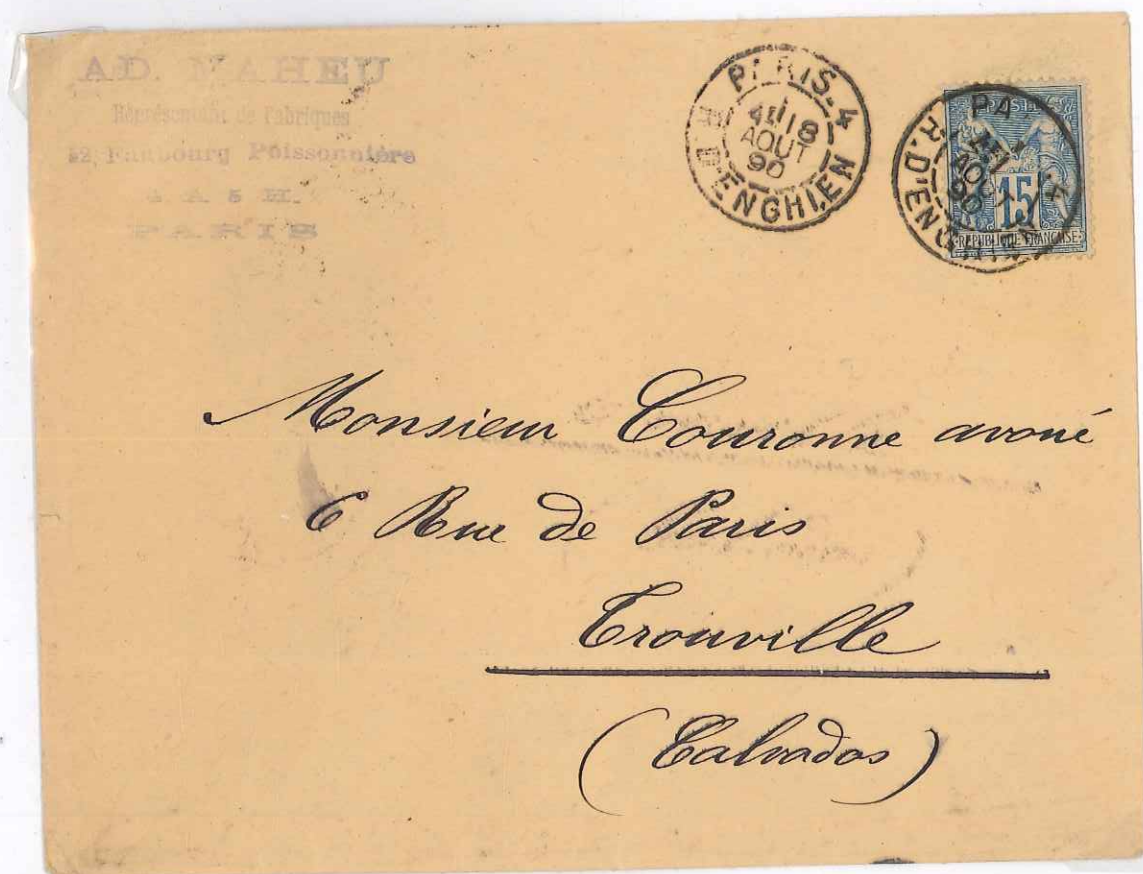 AD. MAHEU
Représentant de Fabriques
52, Faubourg Poissonnière
PARIS
PARIS. 4
18
AOUT
90
R. D'ENGHIEN
POSTES
15
REPUBLIQUE FRANCAISE
PA 4
AOUT
90
R. D'ENGHIEN
Monsieur Couronne avoué
6 Rue de Paris
Trouville
(Calvados)